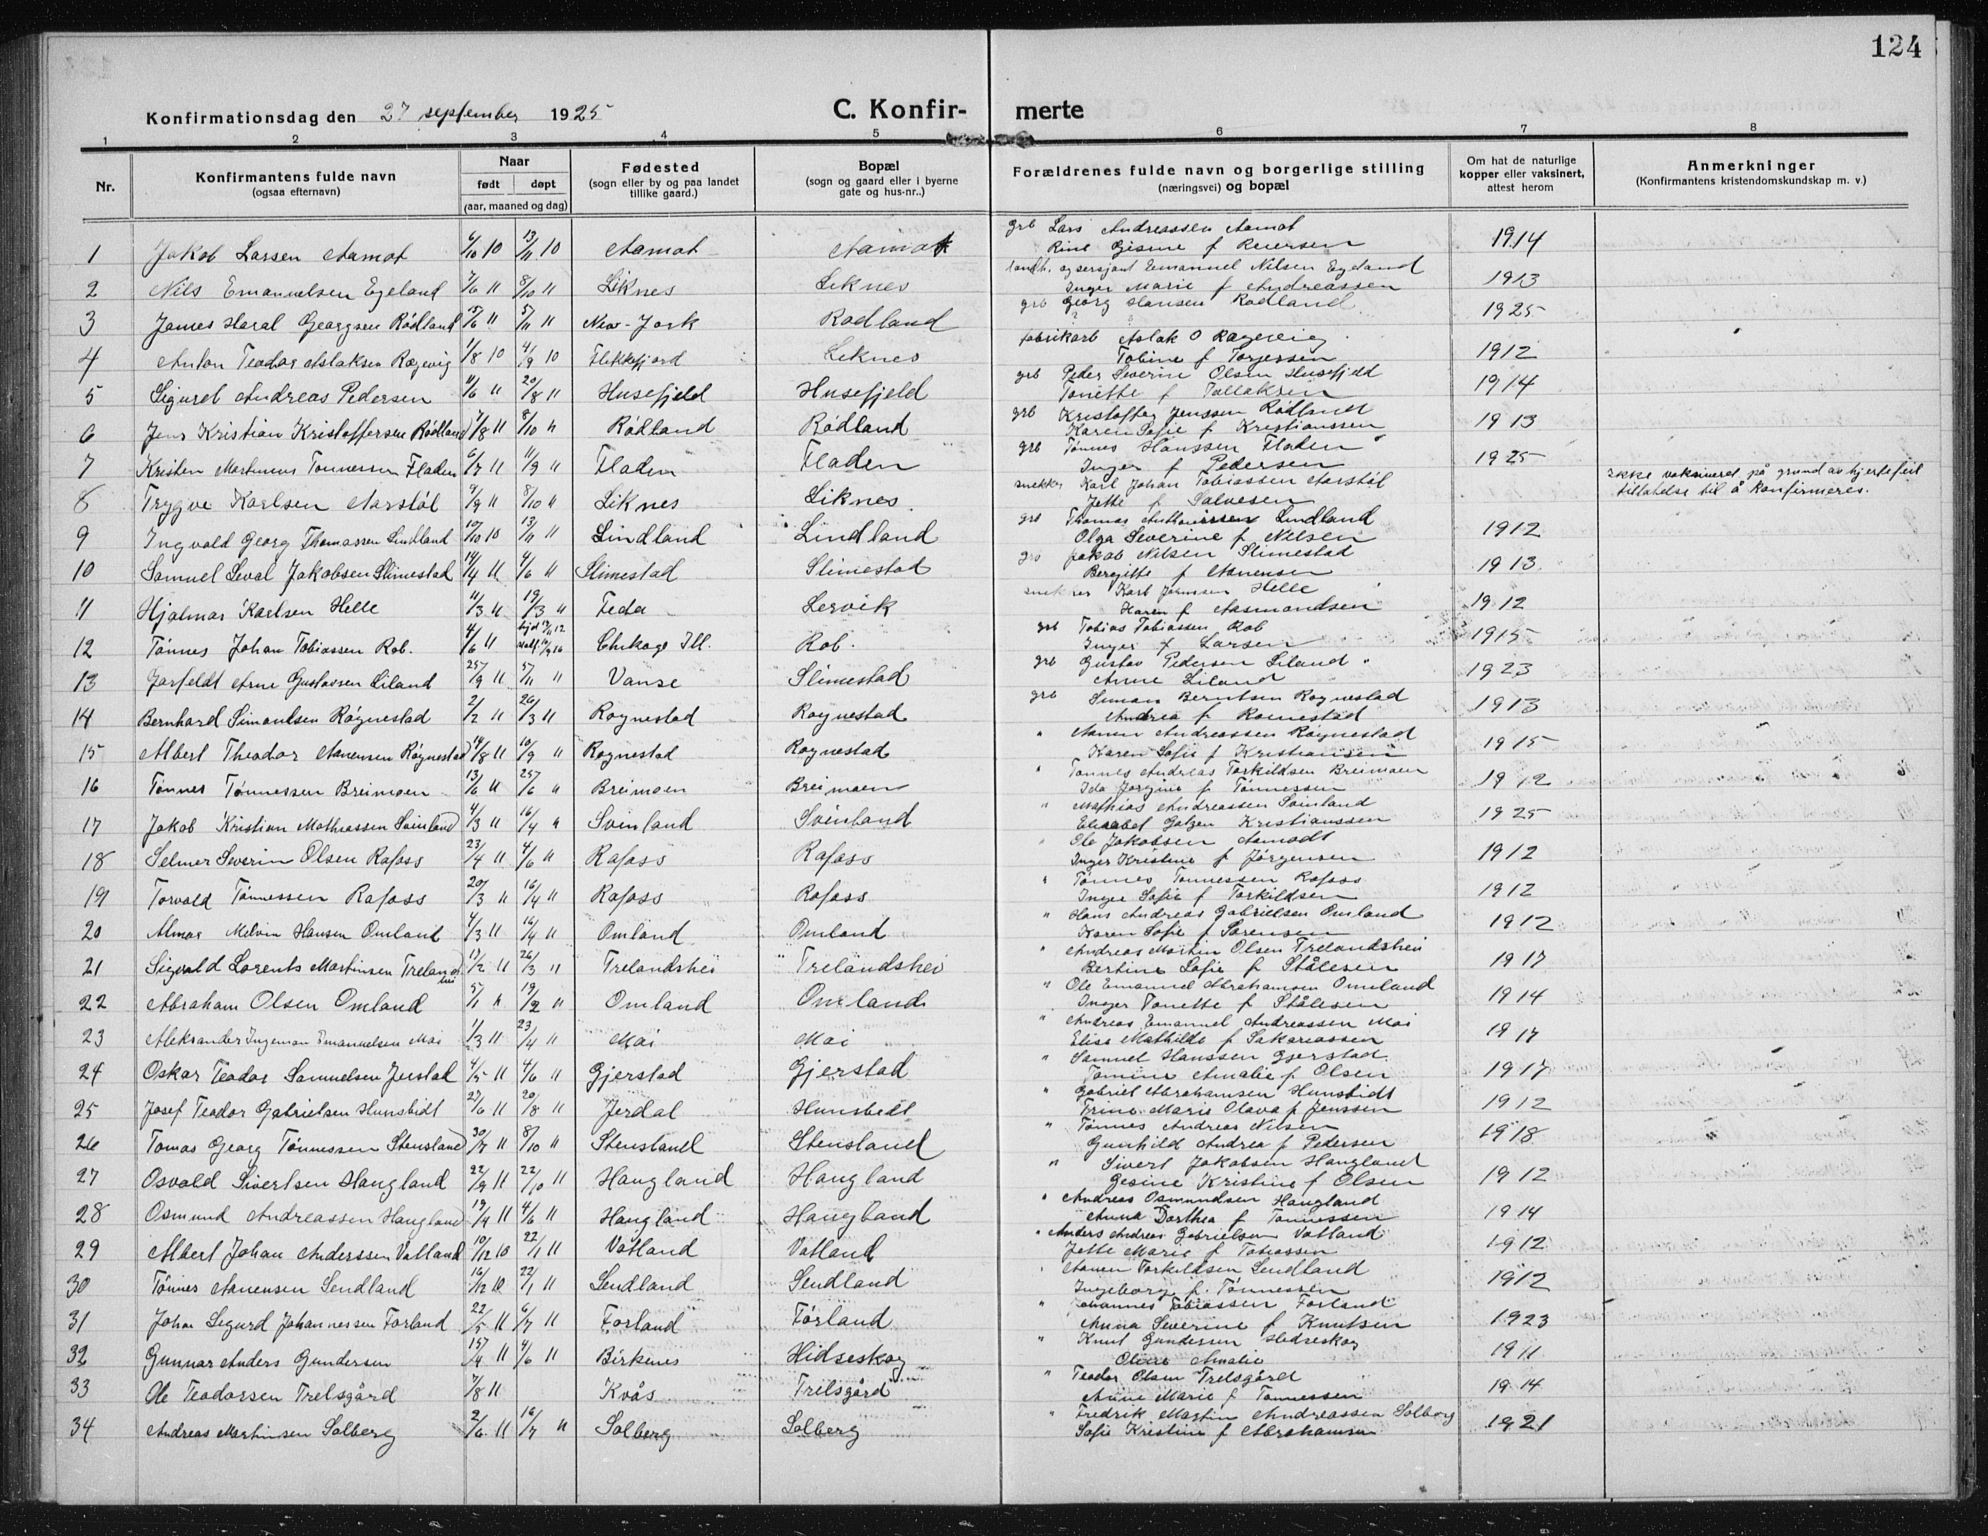 124
Konfirmationsdag den 27 september 1925
C. Konfir- merte
1 2 3 4 5 6 7 8
Nr.
Konfirmantens fulde navn
(ogsaa efternavn)
Naar
født døpt
(aar, maaned og dag)
Fødested
(sogn eller by og paa landet
tillike gaard.)
Bopæl
(sogn og gaard eller i byerne
gate og hus-nr..)
Forældrenes fulde navn og borgerlige stilling
(næringsvei) og bopæl
Om hat de naturlige
kopper eller vaksinert,
attest herom
Anmerkninger
(Konfirmantens kristendomskundskap m. v.)
1 Jakob Larsen Aamot 6/10 10 13/11 10 Aamot Aamot grb Lars Andreassen Aamot 1914
Rine Gisine f Reiersen
2 Nils Emanuelsen Egeland 7/6 11 8/10 11 Liknes Liknes landh. og sersjant Emanuel Nilsen Egeland 1913
Inger Marie f Andreassen
3 James Haral Georgsen Rødland 15/6 11 5/11 11 New-Jork Rødland grb Georg Hansen Rødland 1925
4 Anton Teodor Aslaksen Røgevig 1/8 10 4/9 10 Flekkefjord Liknes fabrikarb Aslak O Røgevig 1912
Tobine f Torjessen
5 Sigurd Andreas Pedersen 11/6 11 20/8 11 Husefjeld Husefjeld grb Peder Severin Olsen Husefjeld 1914
Tonette f Tallaksen
6 Jens Kristian Kristoffersen Rødland 7/8 11 8/10 11 Rødland Rødland grb Kristoffer Jenssen Rødland 1913
Karen Sofie f Kristianssen
7 Kristen Martinius Tønnessen Fladen 6/7 11 11/9 11 Fladen Fladen grb Tønnes Hanssen Fladen 1925
Inger f Pedersen
8 Trygve Karlsen Aarstøl 9/9 11 8/10 11 Liknes Liknes. snekker Karl Johan Tobiassen Aarstøl
Jette f Salvesen
ikke vaksineret på grund av hjertefeil
tillatelse til å konfirmeres.
9 Ingvald Georg Thomassen Lindland 10/10 10 13/11 11 Lindland Lindland grb Thomas Lindland 1912
Olga Severine f Nilsen
10 Samuel Seval Jakobsen Slimestad 14/4 11 4/6 11 Slimestad Slimestad grb Jakob Nilsen Slimestad 1913
Bergitte f Aanensen
11 Hjalmar Karlsen Helle 11/3 11 19/3 11 Feda Lervik snekker Karl Helle 1912
Karen f Aasmundsen
12 Tønnes Johan Tobiassen Rob. 4/6 11 Chikago Ill. Rob. grb Tobias Tobiassen Rob 1915
Inger f Larsen
13 Jarfeldt Arne Gustavsen Liland 25/9 11 5/11 11 Vanse Slimestad grb Gustav Pedersen Liland 1923
Arne Liland
14 Bernhard Simonsen Røgnestad 2/2 11 26/3 11 Røgnestad Røgnestad grb Simon Berntsen Rognestad 1913
Andrea f Romestad
15 Albert Theodor Aanensen Røgnestad 14/8 11 10/9 11 Rognestad Rognestad " Aanen Andreassen Røgnestad 1915
Karen Sofie f Kristiansen
16 Tønnes Tønnessen Breimoen 13/6 11 25/6 11 Breimoen Breimoen " Tønnes Andreas Torkildsen Breimoen 1912
Ida Jørgine f Tønnessen
17 Jakob Kristian Mathiassen Svinland 4/3 11 16/4 11 Svinland Svinland " Mathias Andreassen Svinland 1925
Elisabet Kristianssen
18 Selmer Severin Olsen Rafoss 23/4 11 4/6 11 Rafoss Rafoss " Ole Jakobsen Aamodt 1912
Inger Kristine f Jørgensen
19 Torvald Tønnessen Rafoss 20/3 11 16/4 11 Rafoss Rafoss " Tønnes Tønnessen Rafoss 1912
Inger Sofie f Torkildsen
20 Almar Melvin Hansen Omland 4/3 11 16/4 11 Omland Omland " Hans Andreas Gabrielsen Omland 1912
Karen Sofie f Sørensen
21 Sigvald Lorents Martinsen Trelandshei 17/2 11 26/3 11 Trelandshei Trelandshei " Andreas Martin Olsen Trelandshei 1917
Bertine Sofie f Stålesen
22 Abraham Olsen Omland 5/1 11 19/2 11 Omland Omland " Ole Emanuel Abrahamsen Omland 1914
Inger Tonette f Stålesen
23 Aleksander Ingeman Emanuelsen Moi 1/3 11 23/4 11 Moi Moi " Andreas Emanuel Andreassen Moi 1917
Elise Mathilde f Sakariassen
24 Oskar Teodor Samuelsen Jerstad 4/5 11 4/6 11 Gjerstad Gjerstad " Samuel Hanssen Gjerstad 1917
Tomine Amalie f Olsen
25 Josef Teodor Gabrielsen Hunsbedt 27/6 11 20/8 11 Jerdal Hunsbedt " Gabriel Abrahamsen Hunsbedt 1912
Trine Marie Olava f Jenssen
26 Tomas Georg Tønnessen Stensland 30/7 11 8/10 11 Stensland Stensland " Tønnes Andreas Nilsen 1918
Gunhild Andrea f Pedersen
27 Osvald Sivertsen Haugland 22/9 11 22/10 11 Haugland Haugland " Sivert Jakobsen Haugland 1912
Gesine Kristine f Olsen
28 Osmund Andreassen Haugland 19/4 11 4/6 11 Haugland Haugland " Andreas Osmundsen Haugland 1914
Anna Dorthea f Tønnessen
29 Albert Johan Anderssen Vatland 10/12 10 22/1 11 Vatland Vatland " Anders Andreas Gabrielsen Vatland 1912
Jette Marie f Tobiassen
30 Tønnes Aanensen Sendland 16/12 10 22/1 11 Sendland Sendland " Aanen Torkildsen Sendland 1912
Ingeborg f. Tønnessen
31 Johan Sigurd Johannessen Førland 22/5 11 6/7 11 Førland Førland " Johannes Tobiassen Førland 1923
Anna Severine f Knutsen
32 Gunnar Anders Gundersen 15/4 11 4/6 11 Birkenes Hidseskog " Knut Gundersen Hidseskog 1911
Amalie
33 Ole Teodorsen Trelsgård 7/8 11 Kvås Trelsgård " Teodor Olsen Trelsgård 1914
Anne Marie f Tønnessen
34 Andreas Martinsen Solberg 2/6 11 16/7 11 Solberg Solberg " Fredrik Martin Andreassen Solberg 1921
Sofie Kristine f Abrahamsen